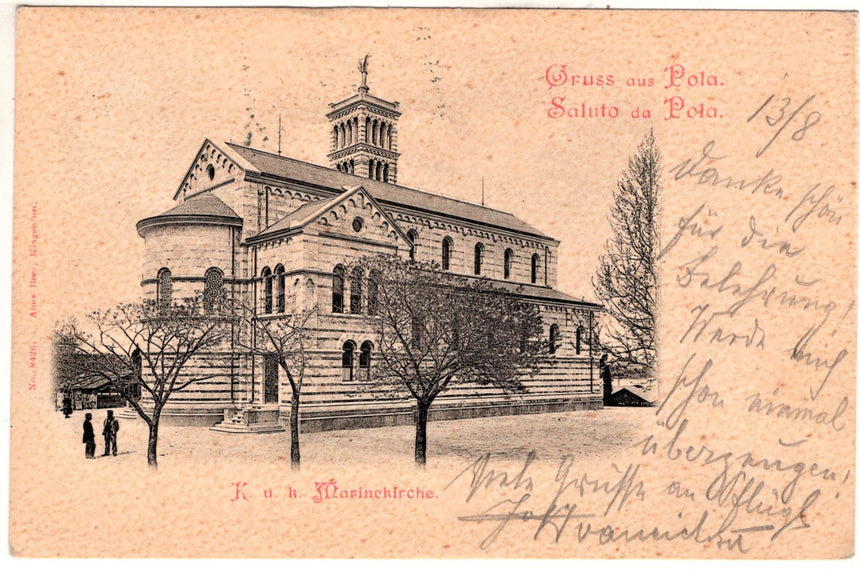 Gruss aus Pola.
Saluto da Pola.
13/8
Danke schön
für die
Belehrung!
Werde mich
schon einmal
überzeugen!
Viele Grüsse an
K. u. k. Marinekirche.
No. 8426. Alois Beer, Klagenfurt.